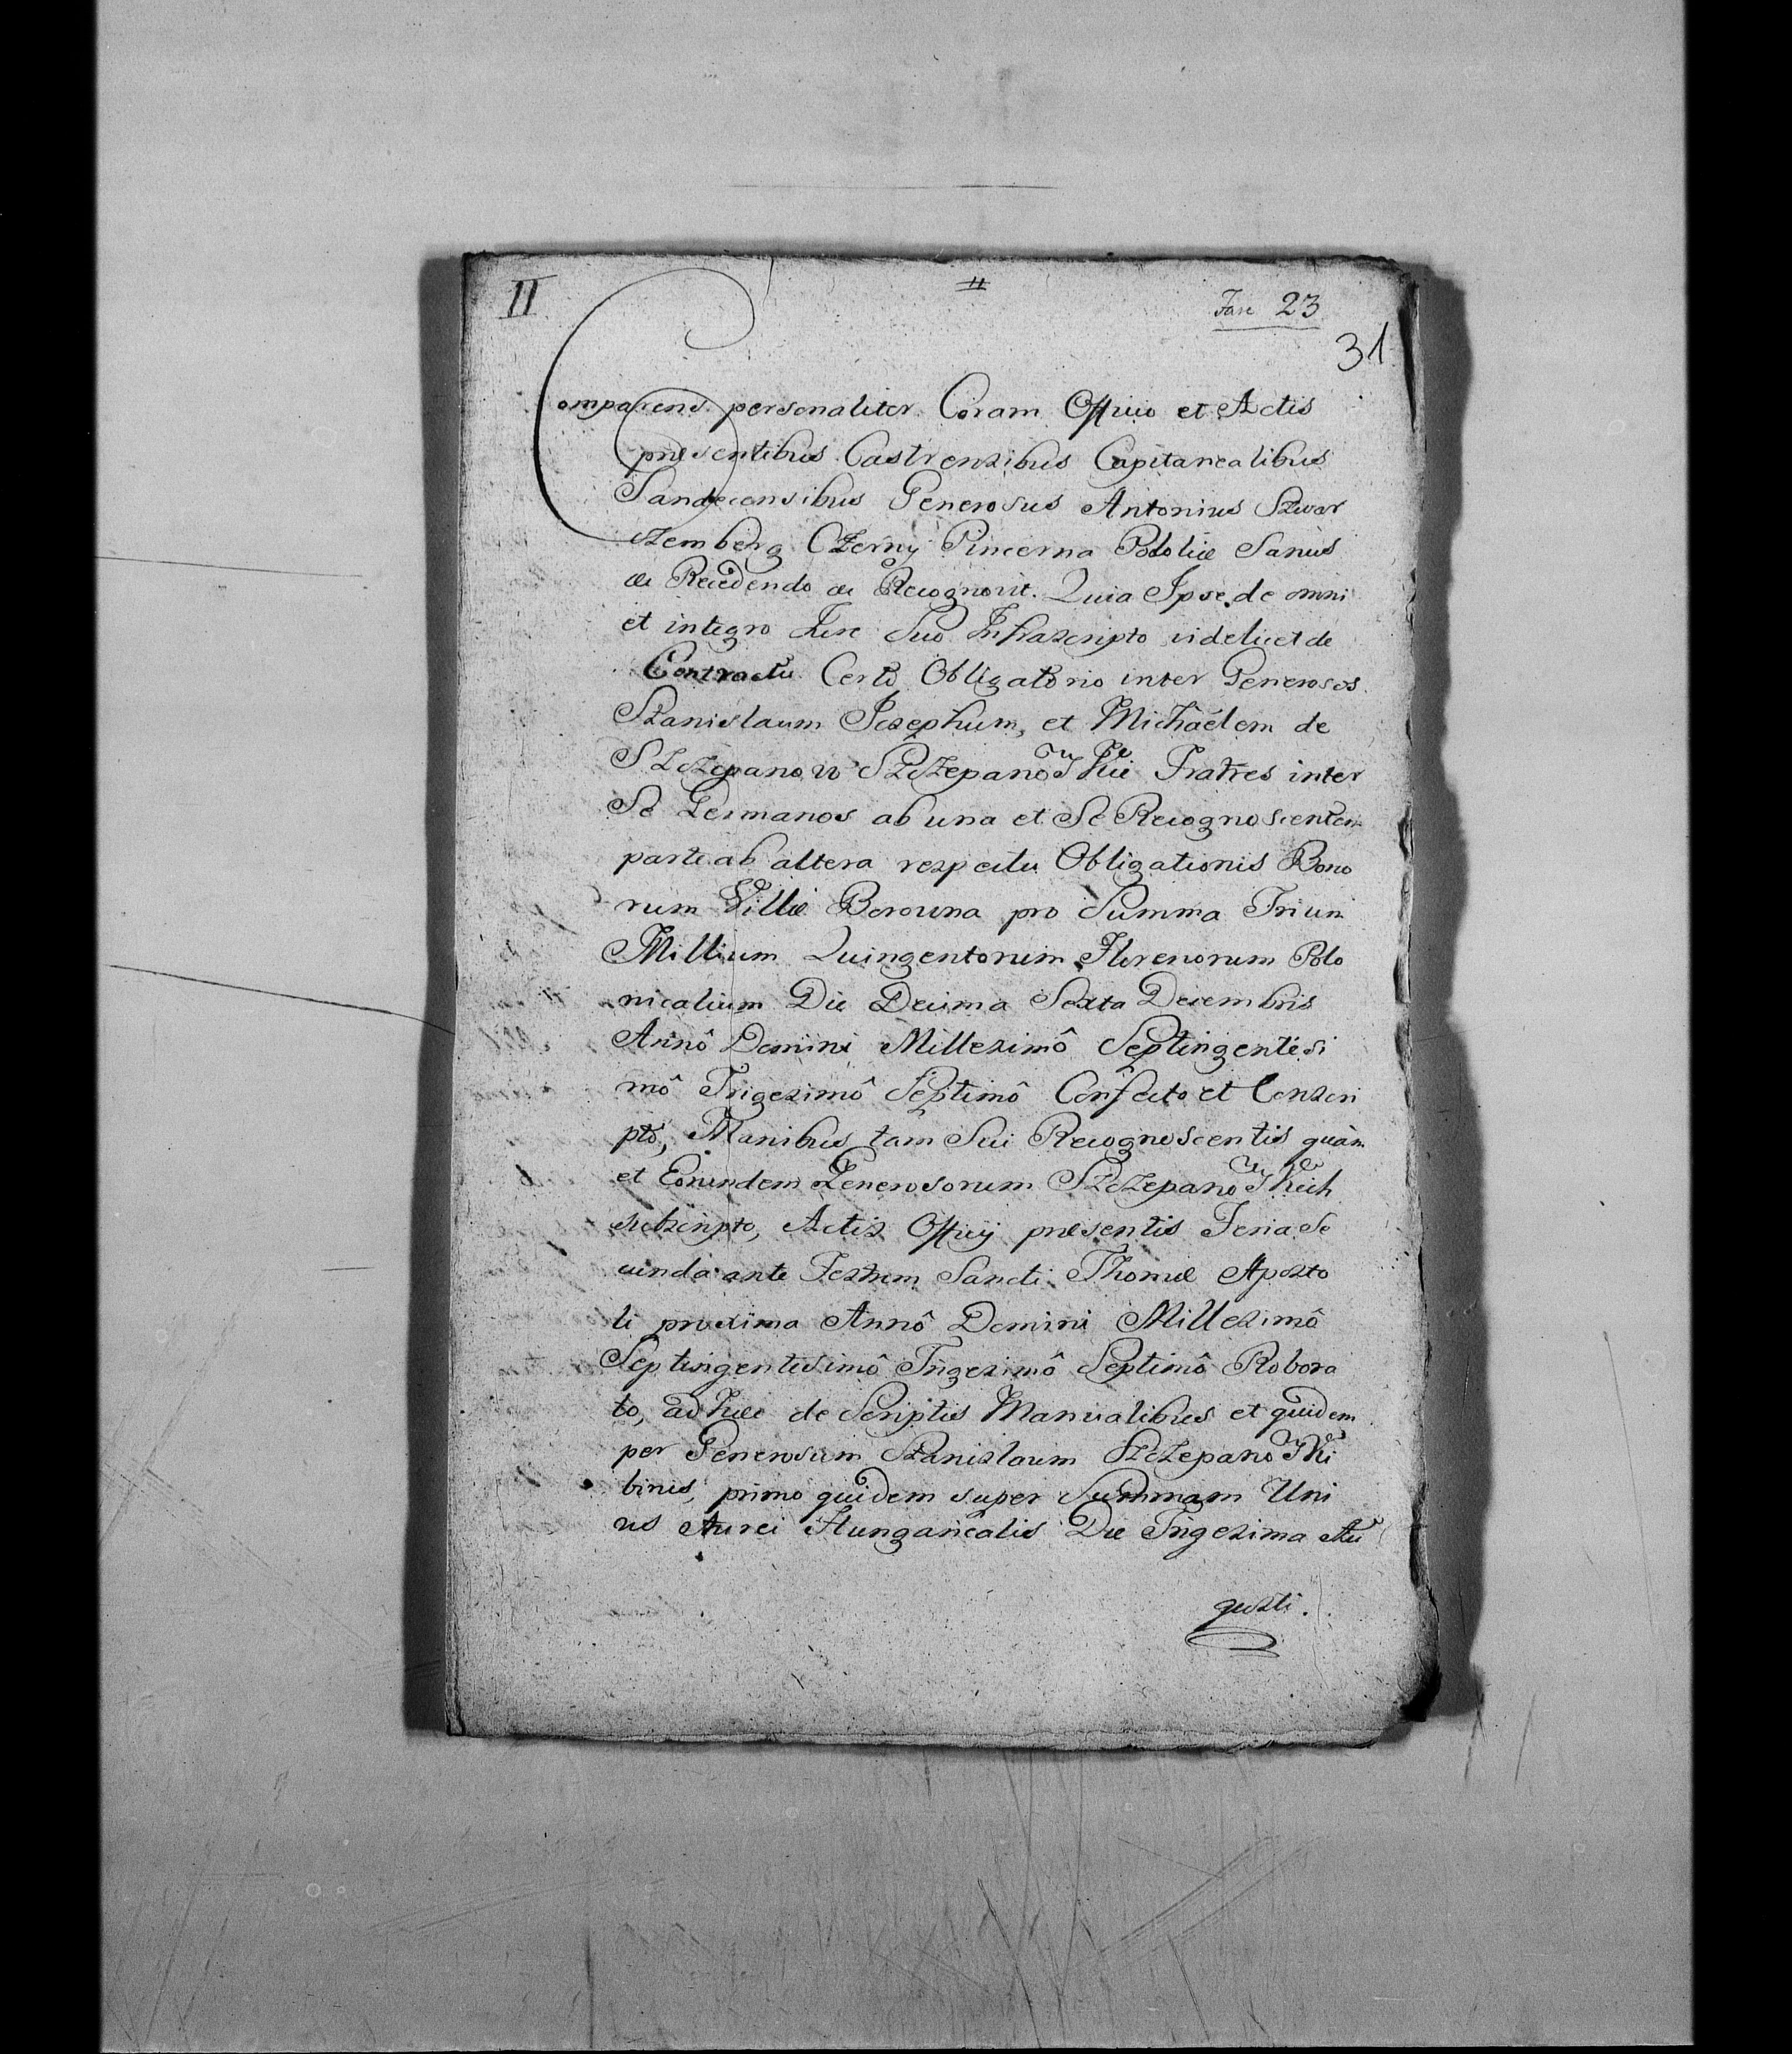 II
II
Fasc 23
31
Comparens personaliter Coram Officio et Actis
præsentibus Castrensibus Capitanealibus
Sandecensibus Generosus Antonius Szwar
szemberg Czerny Pincerna Podoliæ Sanus
&c Recedendo &c Recognovit. Quia Ipse de omni
et integro Jure Suo Infrascripto videlicet de
Contractu Certo Obligatorio inter Generosos
Stanislaum Josephum, et Michaëlem de
Szczepanow Szczepanowskie Fratres inter
Se Germanos ab una et Se Recognoscentem
parte ab altera respectu Obligationis Bono
rum Villæ Berowna pro Summa Trium
Millium Quingentorum Florenorum Polo
nicalium Die Decima Sexta Decembris
Annô Domini Millesimô Septingentesi
mô Trigesimô Septimô Confecto et Conscri
pto, Manibus tam Sui Recognoscentis quàm
et Eorundem Generosorum Szczepanowskich
subscripto, Actis Officij præsentis Feria Se
cunda ante Festum Sancti Thomæ Aposto
li proxima Annô Domini Millesimô
Septingentesimô Trigesimô Septimô Robora
to, adhuc de Scriptis Manualibus et quidem
per Generosum Stanislaum Szczepanowski
binis, primo quidem super Summam Uni
us Aurei Hungaricalis Die Trigesima Au
gusti.